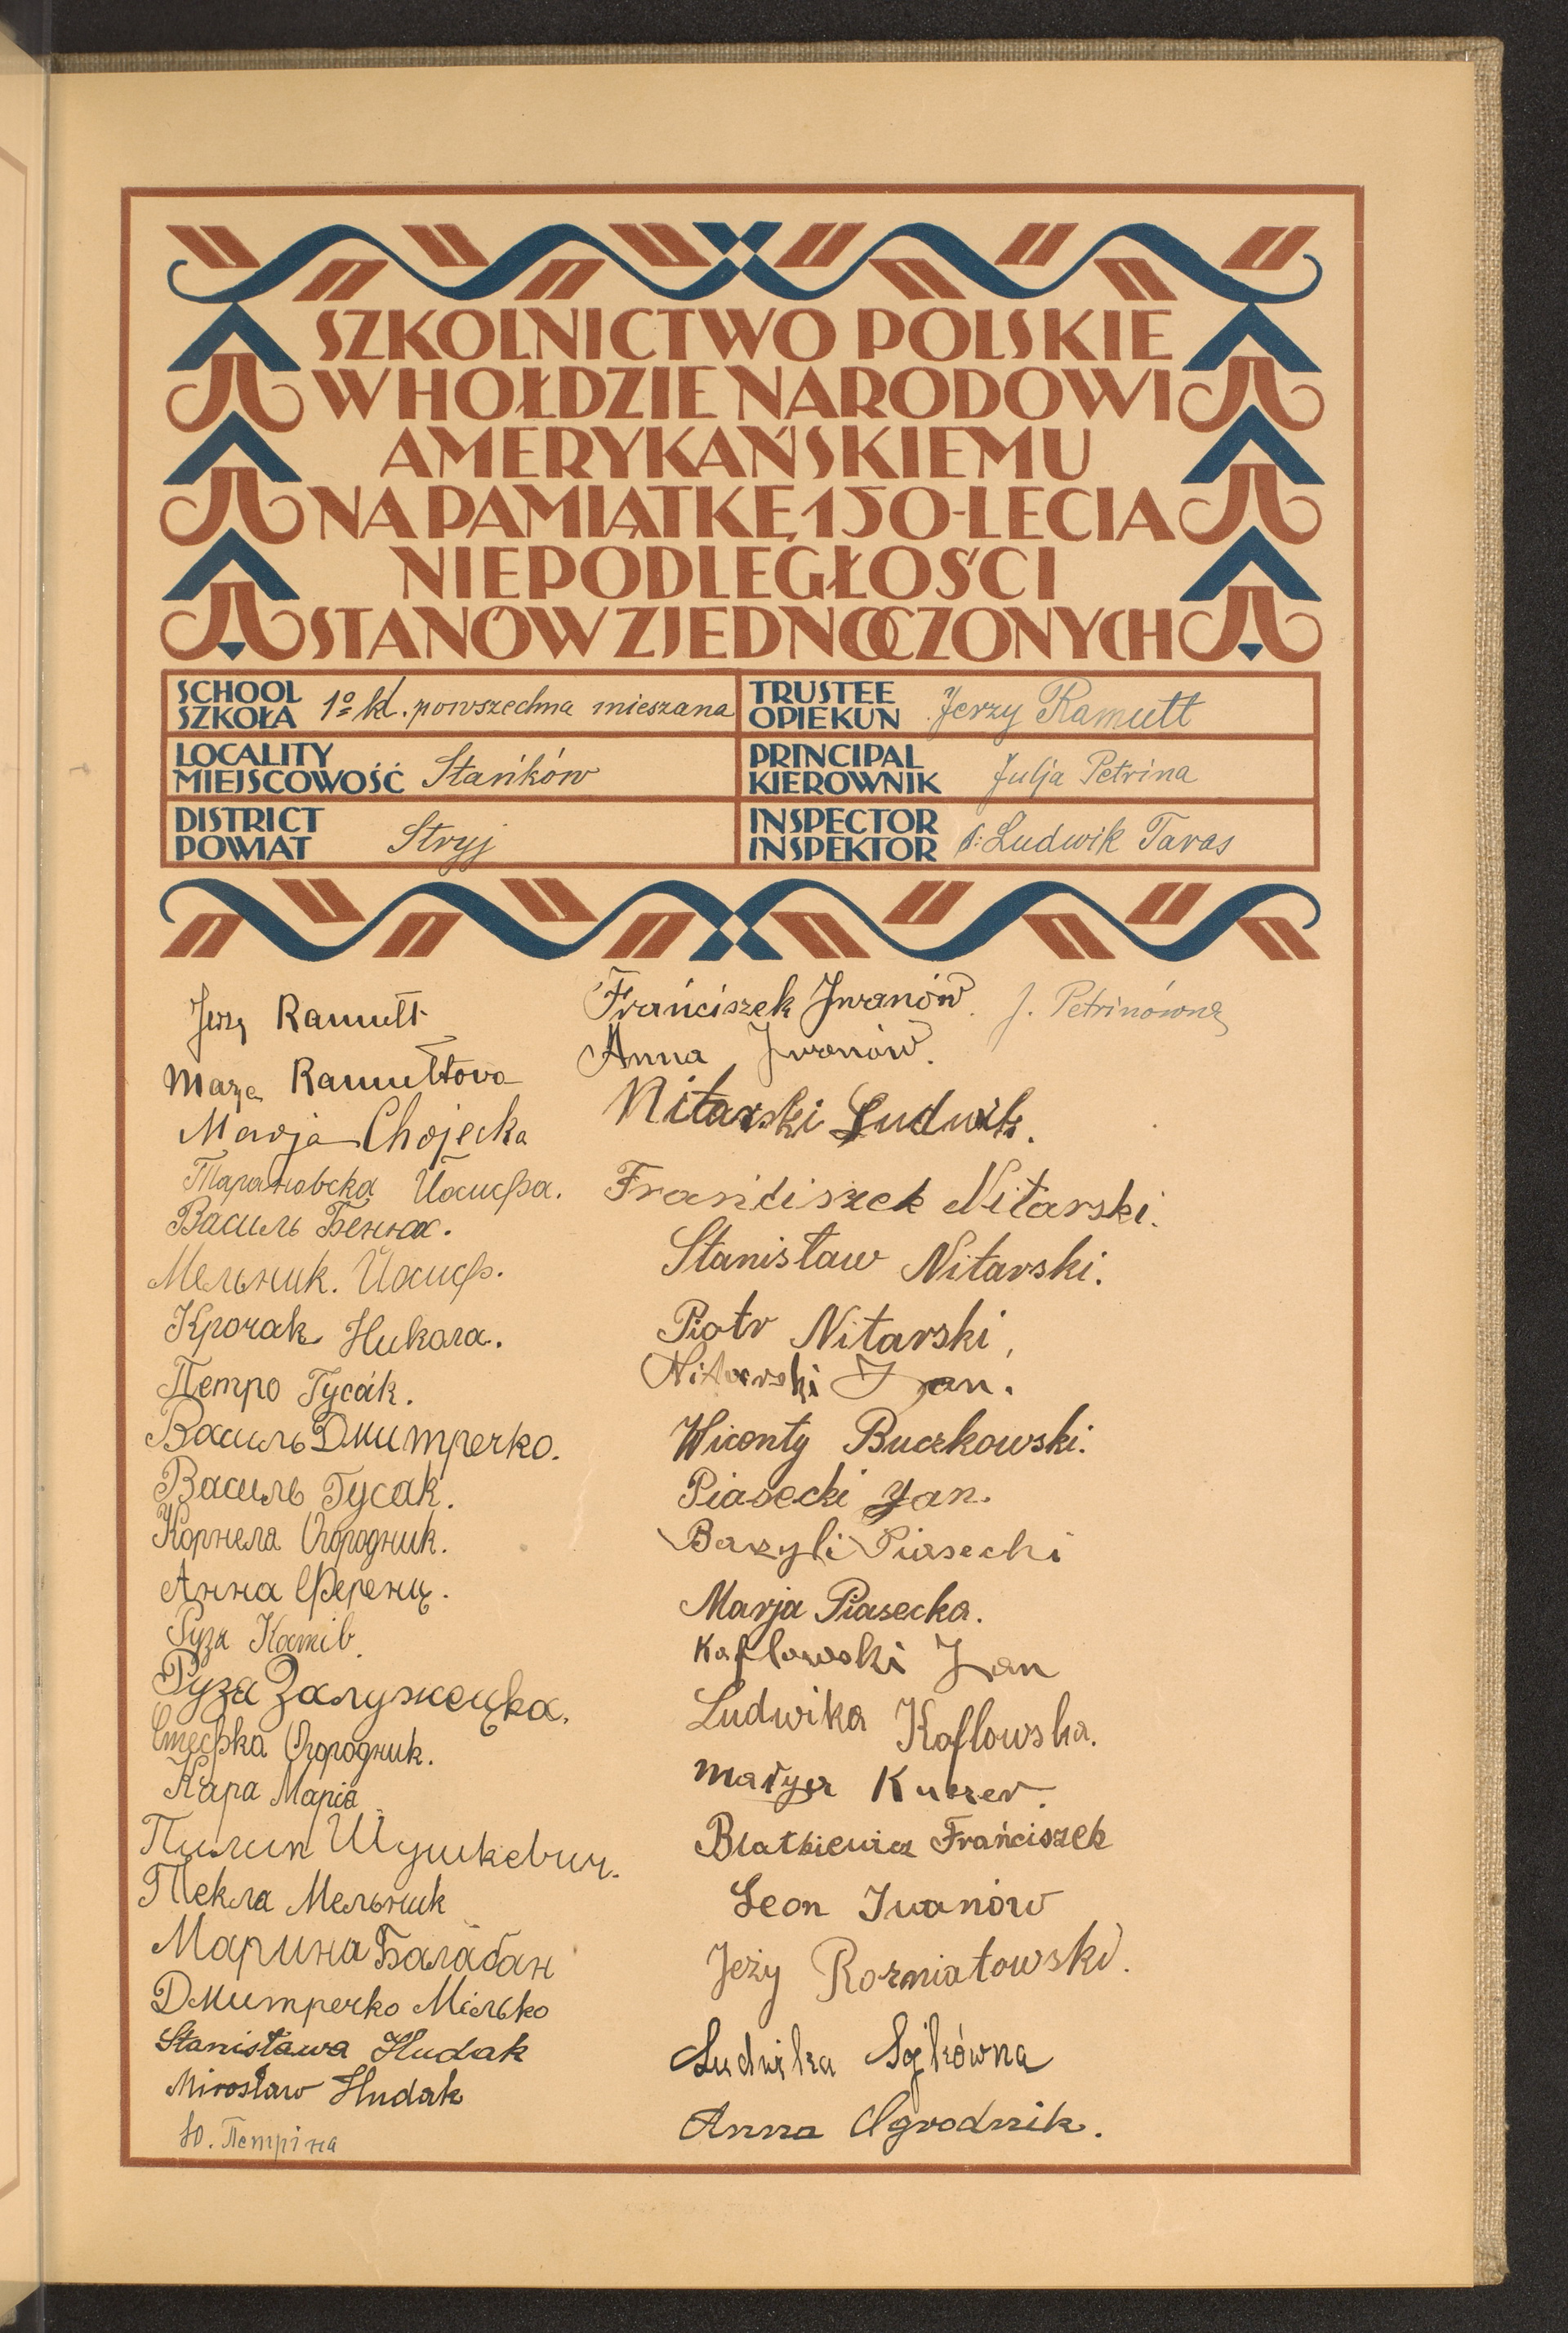 SZKOLNICTWO POLSKIE
W HOŁDZIE NARODOWI
AMERYKAŃSKIEMU
NA PAMIĄTKĘ 150-LECIA
NIEPODLEGŁOŚCI
STANÓW ZJEDNOCZONYCH
SCHOOL
SZKOŁA 1º kl. powszechna mieszana
TRUSTEE
OPIEKUN Jerzy Ramułt
LOCALITY
MIEJSCOWOŚĆ Stańków
PRINCIPAL
KIEROWNIK Julja Petrina
DISTRICT
POWIAT Stryj
INSPECTOR
INSPEKTOR Ludwik Taras
Jerzy Ramułt
Marja Ramułtowa
Marja Chojecka
Тарановска Йосифа.
Василь Беняx.
Мельник. Йосиф.
Крочак Никола.
Петро Гусак.
Василь Дмитречко.
Василь Гусак.
Корнела Огородник.
Анна Ференц.
Рузя Камiв.
Рузя Залужецка.
Стефка Огородник.
Кара Марiя
Пилип Шушкевич.
Текла Мельник
Марина Балабан
Дмитречко Мiлько
Stanisława Hudak
Mirosław Hudak
Ю. Петрiна
Frańciszek Jwanów.
J. Petrinówna
Anna Jwanów.
Nitarski Ludwik.
Frańciszek Nitarski.
Stanisław Nitarski.
Piotr Nitarski,
Nitarski Jan.
Wicenty Buczkowski.
Piasecki Jan.
Bazyli Piasecki
Marja Piasecka.
Kaflowski Jan
Ludwika Kaflowska.
Marya Kuzer.
Blatkiewicz Frańciszek
Leon Iwanów
Jeży Rozniatowski.
Ludwika Sojkówna
Anna Ogrodnik.